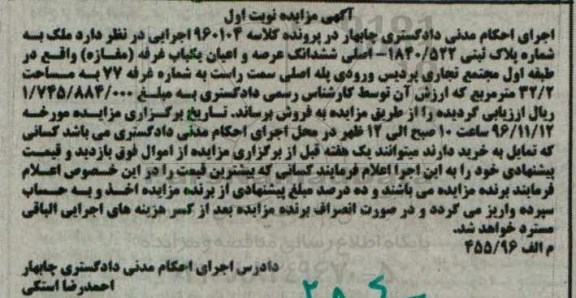 آگهی مزایده نوبت اول
اجرای احکام مدنی دادگستری چابهار در پرونده کلاسه ۹۶۰۱۰۴ اجرایی در نظر دارد ملک به
شماره پلاک ثبتی ۱۸۴۰/۵۲۲- اصلی ششدانگ عرصه و اعیان یکباب غرفه (مغازه) واقع در
طبقه اول مجتمع تجاری پردیس ورودی پله اصلی سمت راست به شماره غرفه ۷۷ به مساحت
۳۲/۲ مترمربع که ارزش آن توسط کارشناس رسمی دادگستری به مبلغ ۱/۷۴۵/۸۸۴/۰۰۰
ریال ارزیابی گردیده را از طریق مزایده به فروش برساند. تاریخ برگزاری مزایده مورخه
۹۶/۱۱/۱۲ ساعت ۱۰ صبح الی ۱۲ ظهر در محل اجرای احکام مدنی دادگستری می باشد کسانی
که تمایل به خرید دارند میتوانند یک هفته قبل از برگزاری مزایده از اموال فوق بازدید و قیمت
پیشنهادی خود را به این اجرا اعلام فرمایند کسانی که بیشترین قیمت را در این خصوص اعلام
فرمایند برنده مزایده می باشند و ده درصد مبلغ پیشنهادی از برنده مزایده اخذ و به حساب
سپرده واریز می گردد و در صورت انصراف برنده مزایده بعد از کسر هزینه های اجرایی الباقی
مسترد خواهد شد.
م الف ۴۵۵/۹۶
دادرس اجرای احکام مدنی دادگستری چابهار
احمدرضا استکی